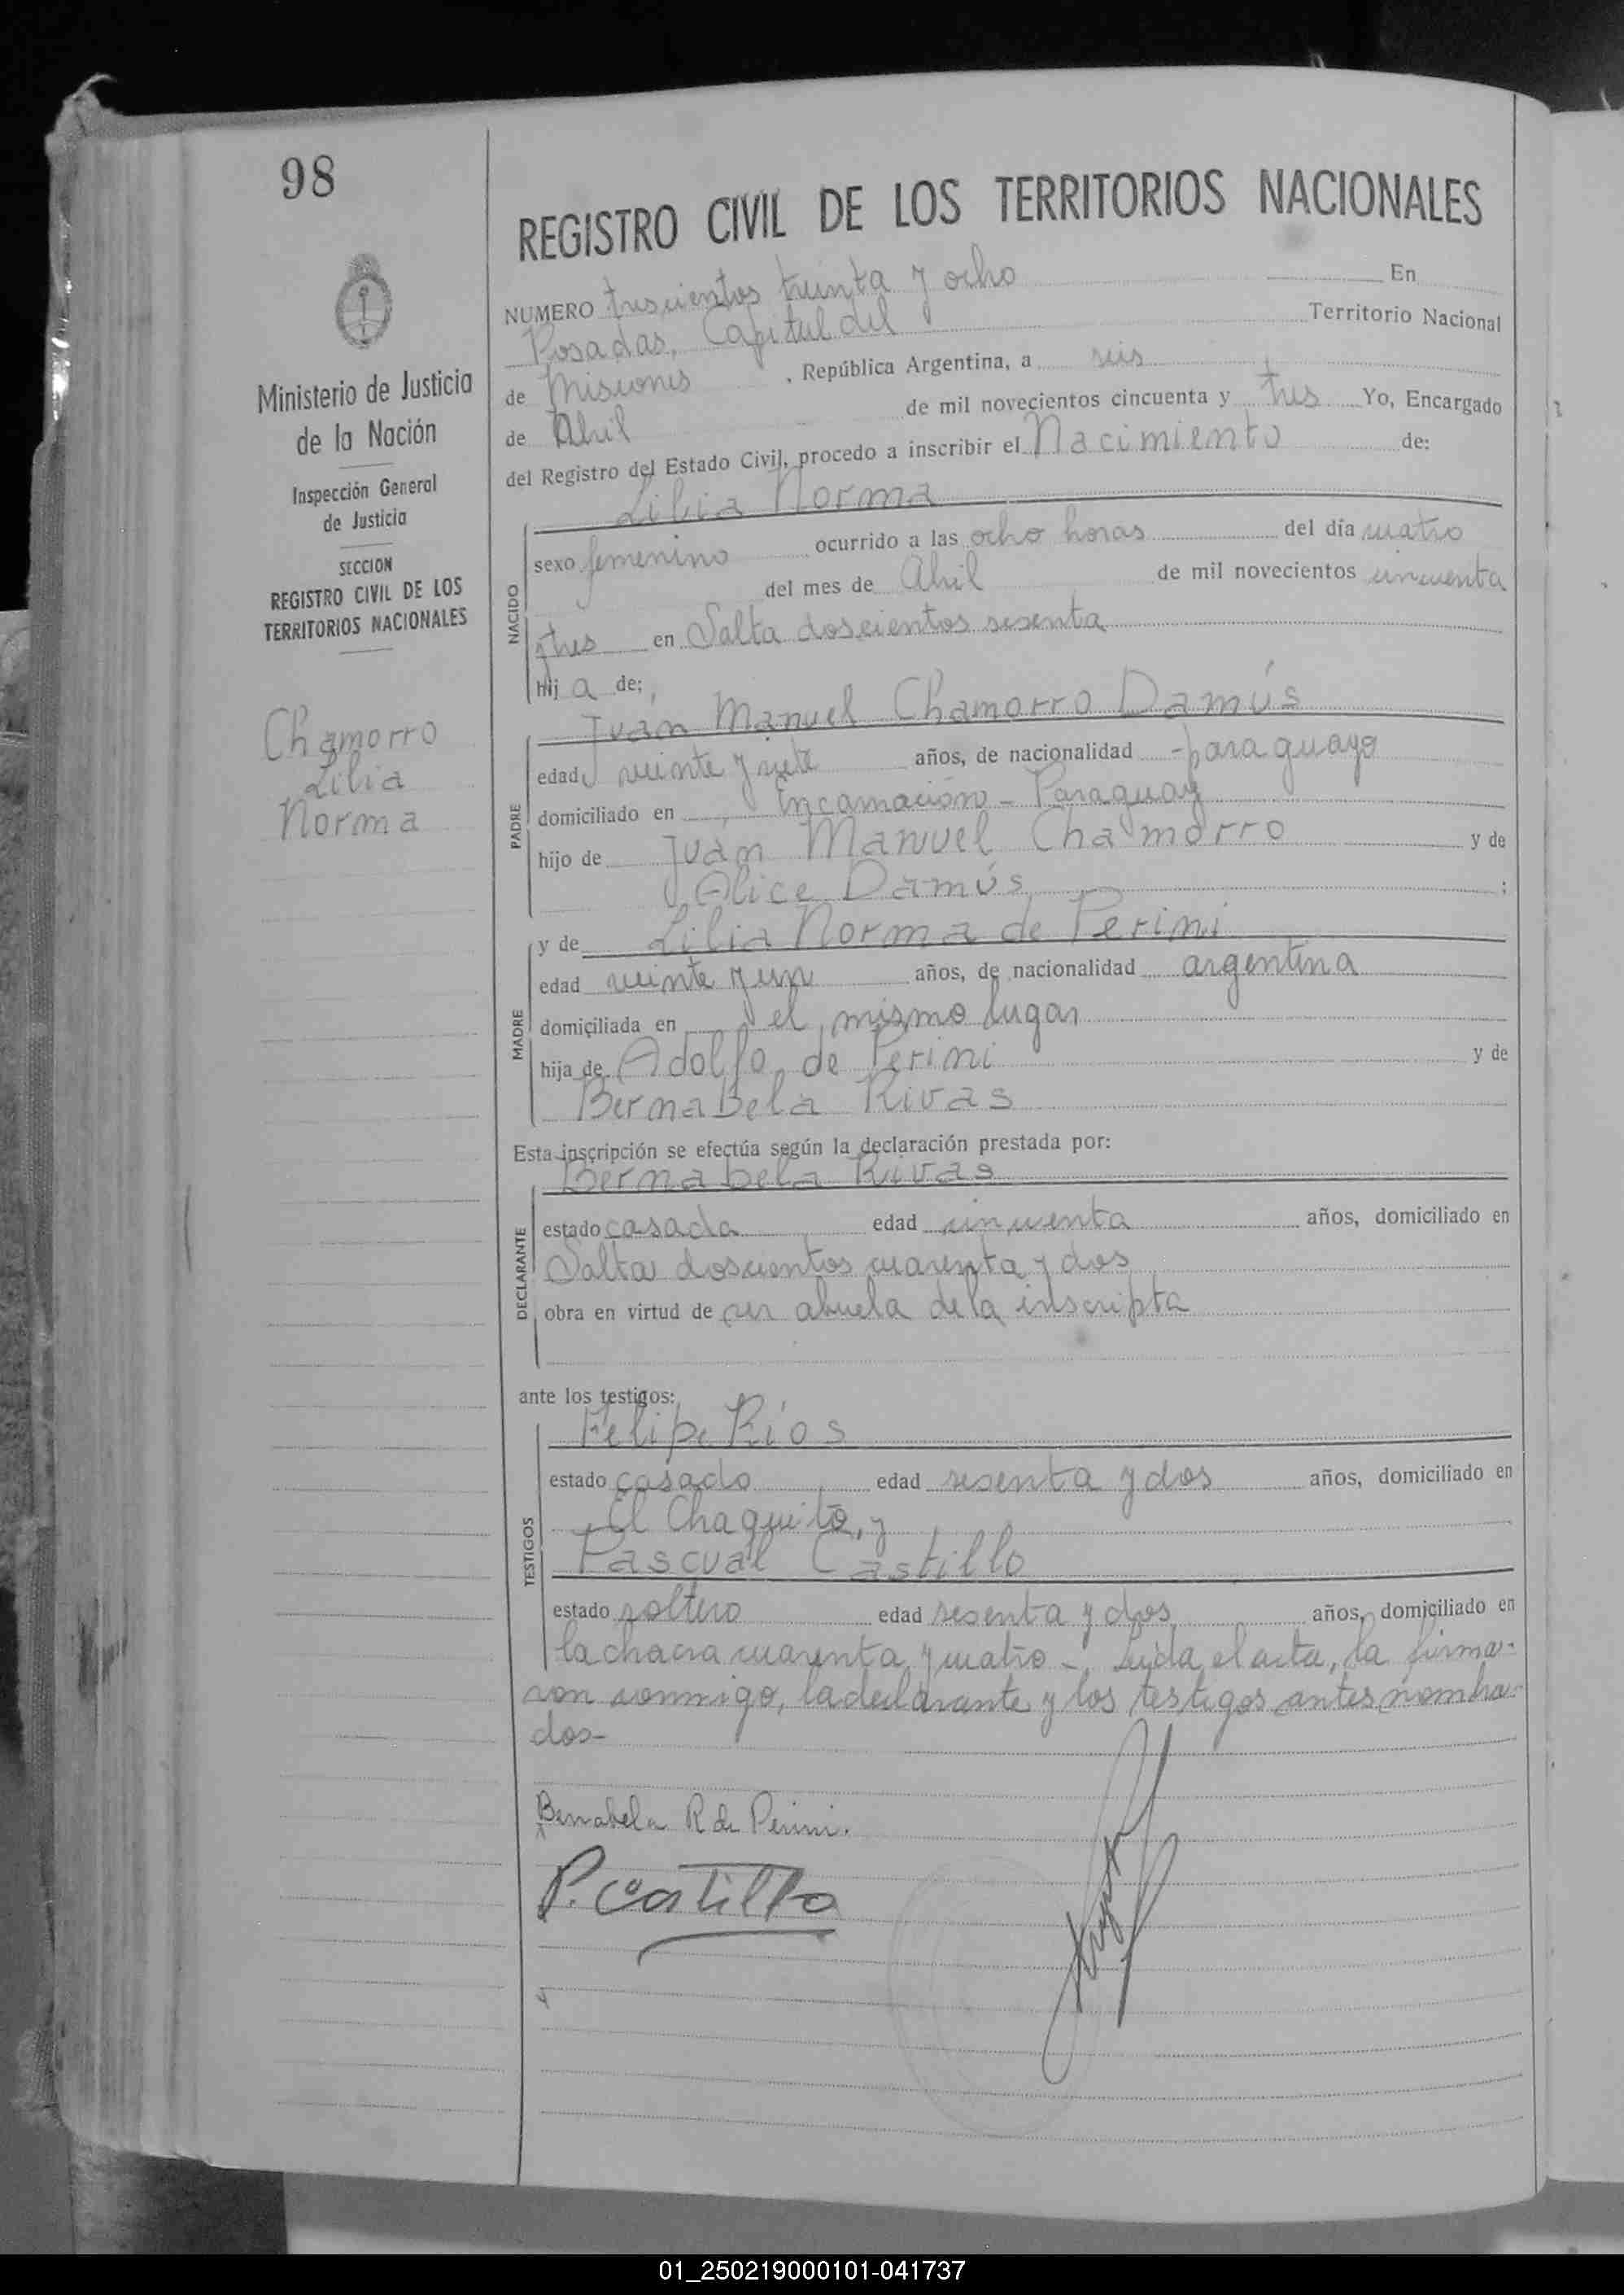 98
REGISTRO CIVIL DE LOS TERRITORIOS NACIONALES
Ministerio de Justicia
de la Nación
Inspección General
de Justicia
SECCION
REGISTRO CIVIL DE LOS
TERRITORIOS NACIONALES
Chamorro
Lilia
Norma
NUMERO trescientos treinta y ocho En
Posadas, Capital del Territorio Nacional
de Misiones, República Argentina, a seis
de Abril de mil novecientos cincuenta y tres Yo, Encargado
del Registro del Estado Civil, procedo a inscribir el Nacimiento de:
Lilia Norma
NACIDO
sexo femenino ocurrido a las ocho horas del día cuatro
del mes de Abril de mil novecientos cincuenta
y tres en Salta doscientos sesenta
hij a de:
Juan Manuel Chamorro Damús
PADRE
edad veinte y siete años, de nacionalidad paraguayo
domiciliado en Encarnación - Paraguay
hijo de Juan Manuel Chamorro y de
Alice Damús ;
MADRE
y de Lilia Norma de Perini
edad veinte y un años, de nacionalidad argentina
domiciliada en el mismo lugar
hija de Adolfo de Perini y de
Bernabela Rivas
Esta inscripción se efectúa según la declaración prestada por:
Bernabela Rivas
DECLARANTE
estado casada edad cincuenta años, domiciliado en
Salta doscientos cuarenta y dos
obra en virtud de ser abuela de la inscripta
ante los testigos:
Felipe Ríos
TESTIGOS
estado casado edad sesenta y dos años, domiciliado en
El Chaquito, y
Pascual Castillo
estado soltero edad sesenta y dos años, domiciliado en
la chacra cuarenta y cuatro - Leida el acta, la firma-
ron conmigo, la declarante y los testigos antes nombra-
dos-
Bernabela R de Perini.
P. Castillo
01_250219000101-041737